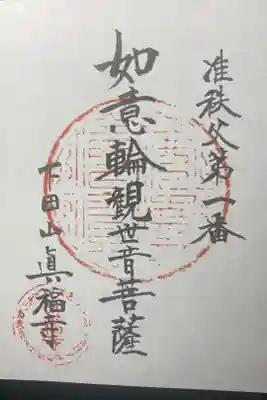 准秩父第一番
如意輪観世音菩薩
下田山 眞福寺